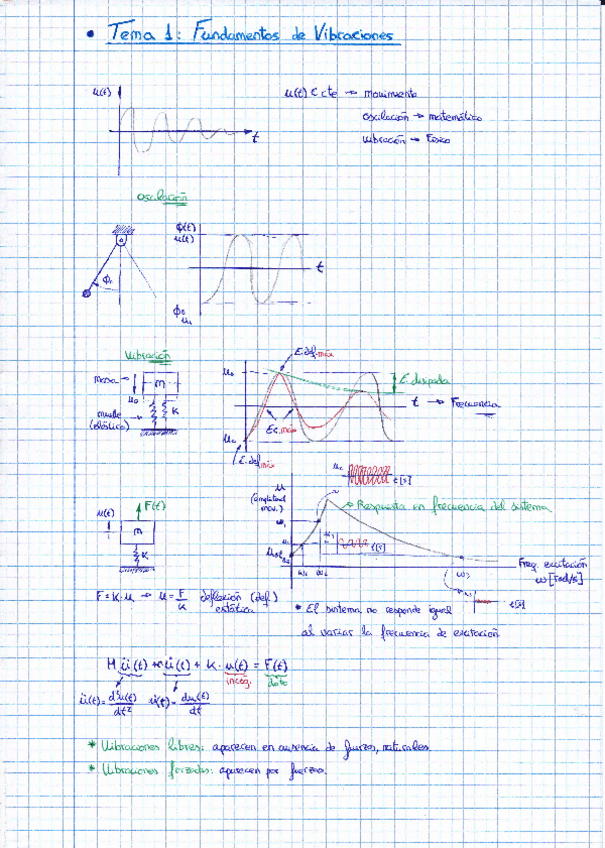 • Tema 1: Fundamentos de Vibraciones
u(t)
t
u(t) ≠ cte → movimiento
oscilación → matemático
vibración → Físico
Oscilación
ϕ(t)
u(t)
t
ϕ₀
ϕ₀
u₀
Vibración
masa →
m
u₀
K
muelle →
(elástico)
E.def.máx
u₀
E. disipada
t → Frecuencia
Ec.máx
u₀
E.def máx
t[s]
u
(amplitud mov.)
→ Respuesta en frecuencia del sistema
u(t)
F(t)
m
K
t[s]
Freq. excitación
ω [rad/s]
t[s]
F = K·u → u = F/K deflexión (def.) estática
* El sistema no responde igual
al variar la frecuencia de excitación
M ü(t) + c u̇(t) + K·u(t) = F(t)
incóg. dato
ü(t) = d²u(t)/dt² u̇(t) = du(t)/dt
* Vibraciones libres: aparecen en ausencia de fuerzas, naturales.
* Vibraciones forzadas: aparecen por fuerzas.